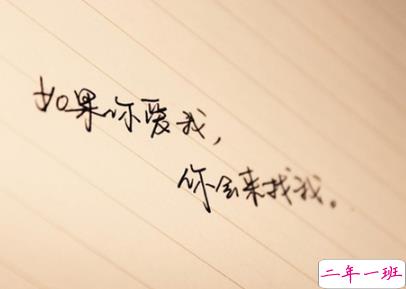 如果你爱我，
你会来找我。
二年一班